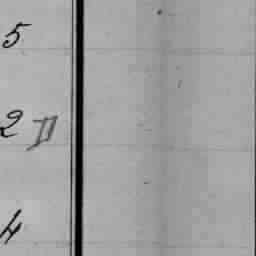 5
2 II
4